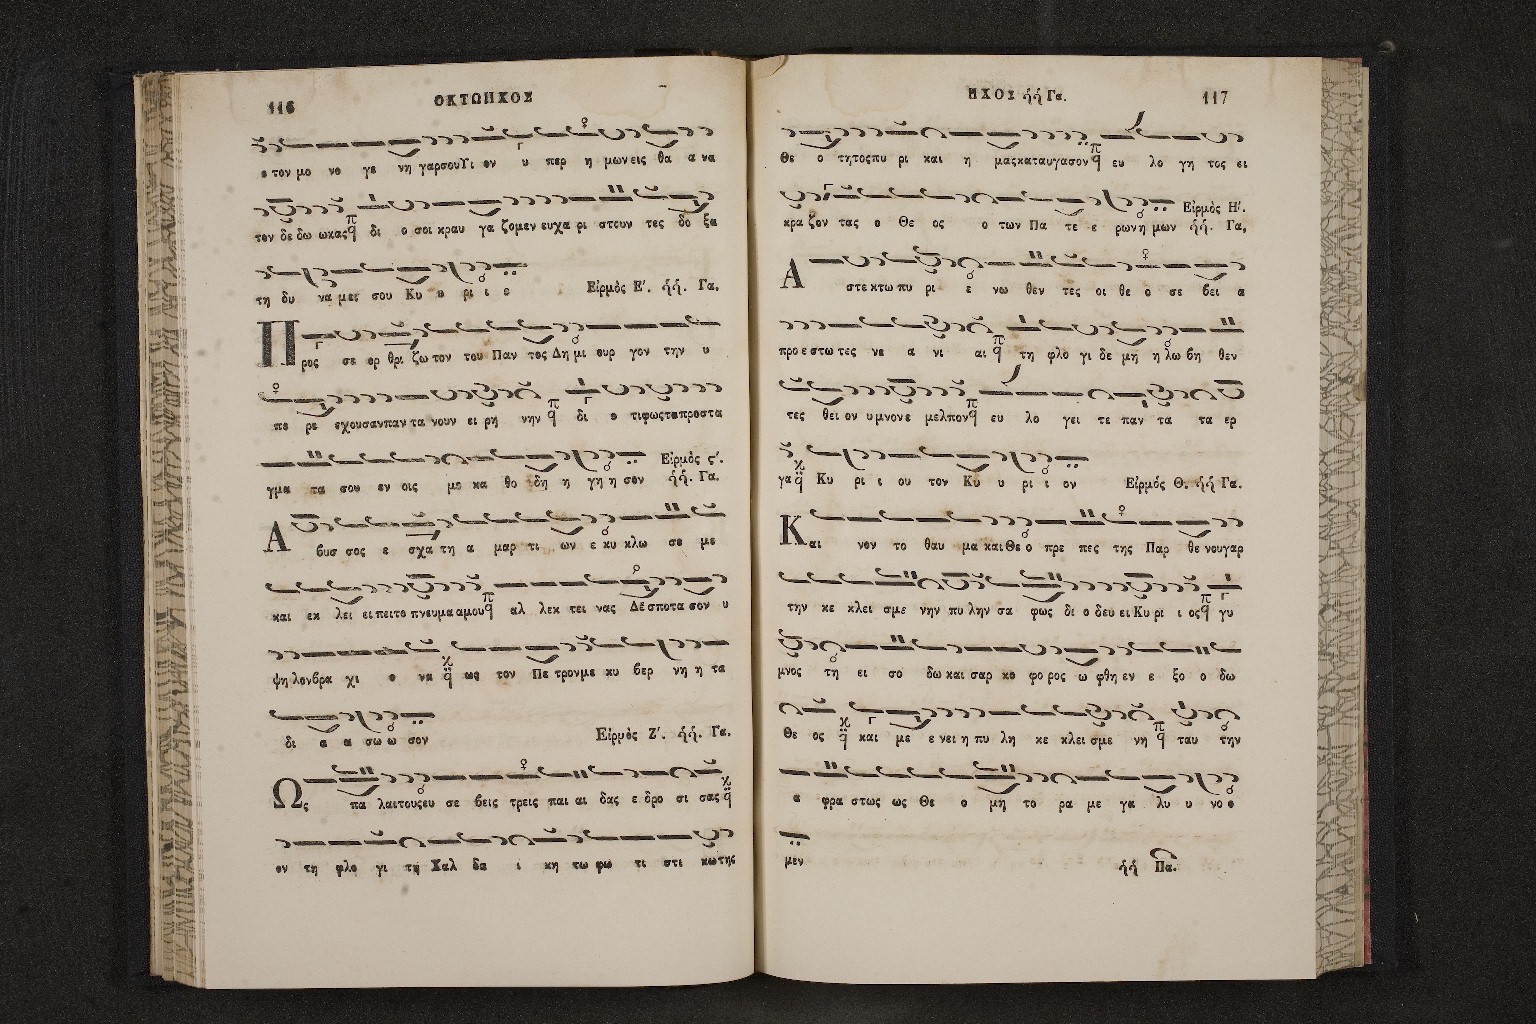 116 ΟΚΤΩΗΧΟΣ
ο τον μο νο γε νη γαρ σου Υι ον υ περ η μων εις θα α να
τον δε δω ωκας δι ο σοι κραυ γα ζομεν ευχα ρι στουν τες δο ξα
τη δυ να μει σου Κυ υ ρι ι ε Εἱρμὸς Ε'. ἦχ. Γα.
Προς σε ορ θρι ζω τον του Παν τος Δη μι ουρ γον την υ
πε ρε εχουσαν παν τα νουν ει ρη νην δι ο τι φως τα προστα
γμα τα σου εν οις με κα θο δη η γη η σον
Εἱρμὸς ς'. ἦχ. Γα.
Α βυσ σος ε σχα τη α μαρ τι ων ε κυ κλω σε με
και εκ λει ει πει το πνευμα α μου αλ λ εκ τει νας Δε σποτα σον υ
ψη λον βρα χι ο να ως τον Πε τρον με κυ βερ νη η τα
δι α α σω ω σον Εἱρμὸς Ζ'. ἦχ. Γα.
Ως πα λαι τους ευ σε βεις τρεις παι αι δας ε δρο σι σας
εν τη φλο γι τη Χαλ δα ι κη τω φω τι στι κω της
ΗΧΟΣ ἦχ Γα. 117
Θε ο τητος πυ ρι και η μας καταυγασον ευ λο γη τος ει
κρα ζον τας ο Θε ος ο των Πα τε ε ρων η μων
Εἱρμὸς Η'. ἦχ. Γα,
Α στε κτω πυ ρι ε νω θεν τες οι θε ο σε βει α
προ ε στω τες νε α νι αι τη φλο γι δε μη η λω βη θεν
τες θει ον υ μνον ε μελπον ευ λο γει τε παν τα τα ερ
γα Κυ ρι ι ου τον Κυ υ ρι ι ον Εἱρμὸς Θ. ἦχ Γα.
Και νον το θαυ μα και Θε ο πρε πες της Παρ θε νου γαρ
την κε κλει σμε νην πυ λην σα φως δι ο δευ ει Κυ ρι ι ος γυ
μνος τη ει σο δω και σαρ κο φο ρος ω φθη εν ε ξο ο δω
Θε ος και με ε νει η πυ λη κε κλει σμε νη ταυ την
α φρα στως ως Θε ο μη το ρα με γα λυ υ νο ο
μεν ἦχ Πα.